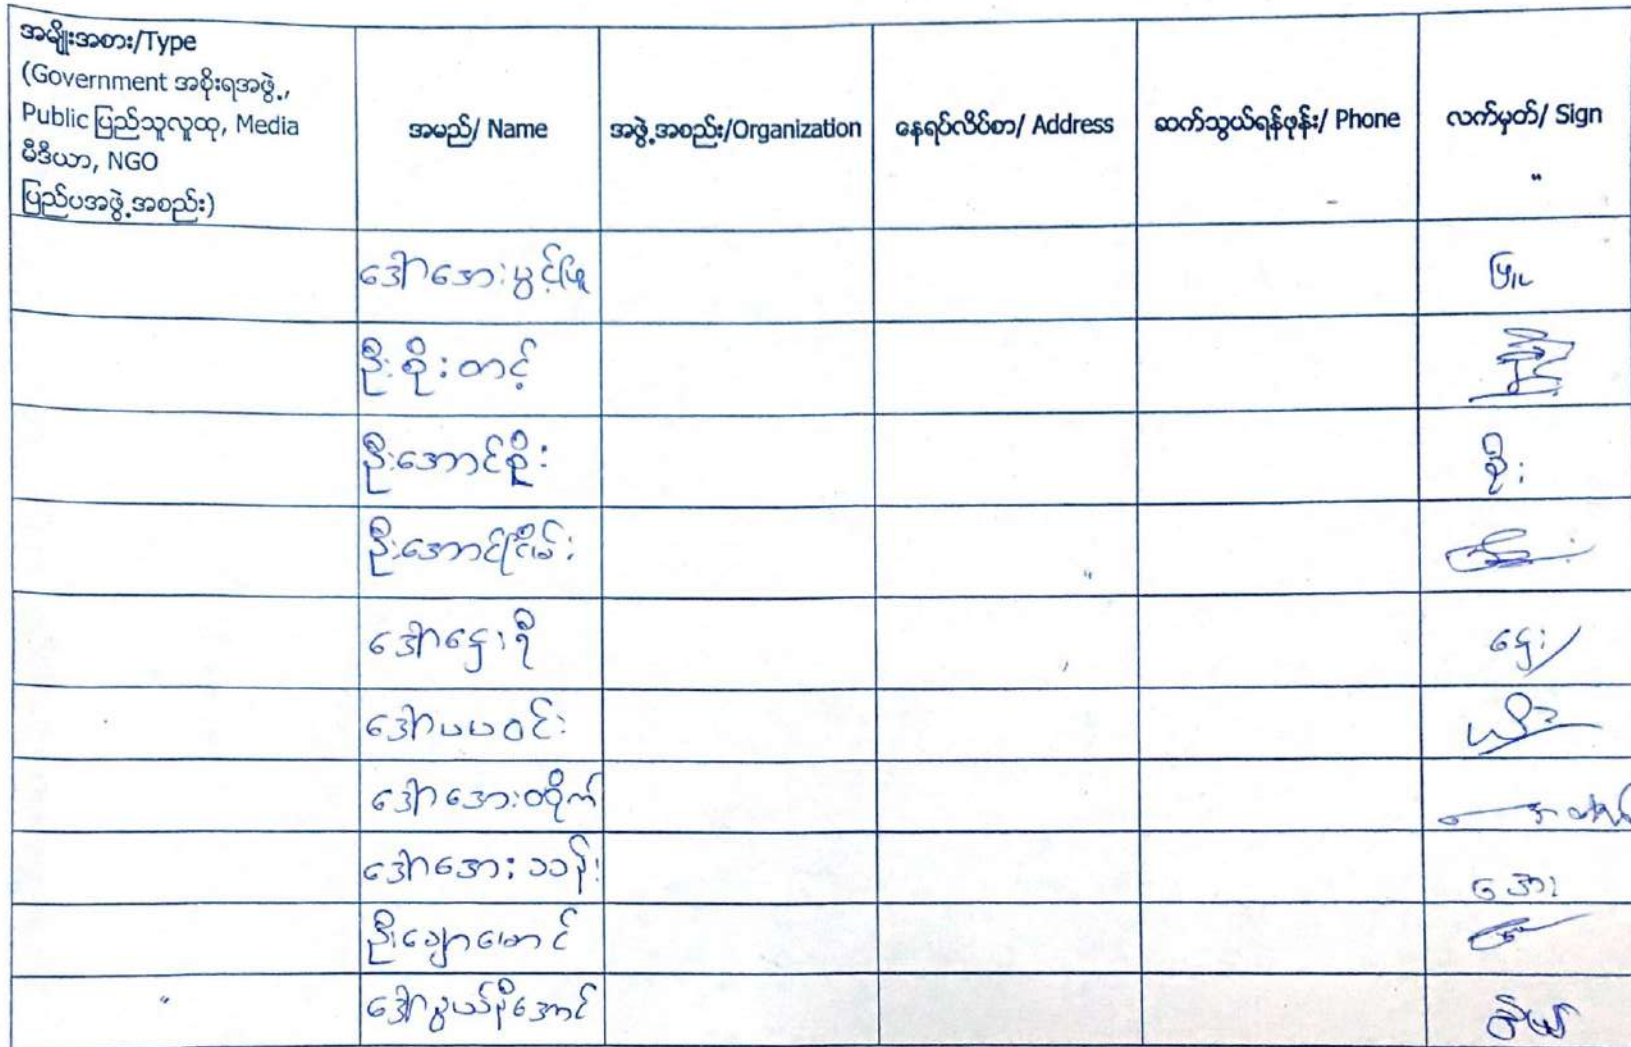 အမျိုးအစား/Type
(Government အစိုးရအဖွဲ့,
Public ပြည်သူလူထု, Media
မီဒီယာ, NGO
ပြည်ပအဖွဲ့အစည်း)
အမည်/ Name
အဖွဲ့အစည်း/Organization
နေရပ်လိပ်စာ/ Address
ဆက်သွယ်ရန်ဖုန်း/ Phone
လက်မှတ်/ Sign
ဒေါ်အေးမွင့်ဖြူ ဖြူ
ဦးစိုးတင့်
ဦးအောင်စိုး စိုး
ဦးအောင်ငြိမ်း
ဒေါ်ဌေးရီ ဌေး
ဒေါ်ပပဝင်း
ဒေါ်အေး
ဒေါ်အေးသန်း အေး
ဦးကျော
ဒေါ်နွယ်နီအောင်